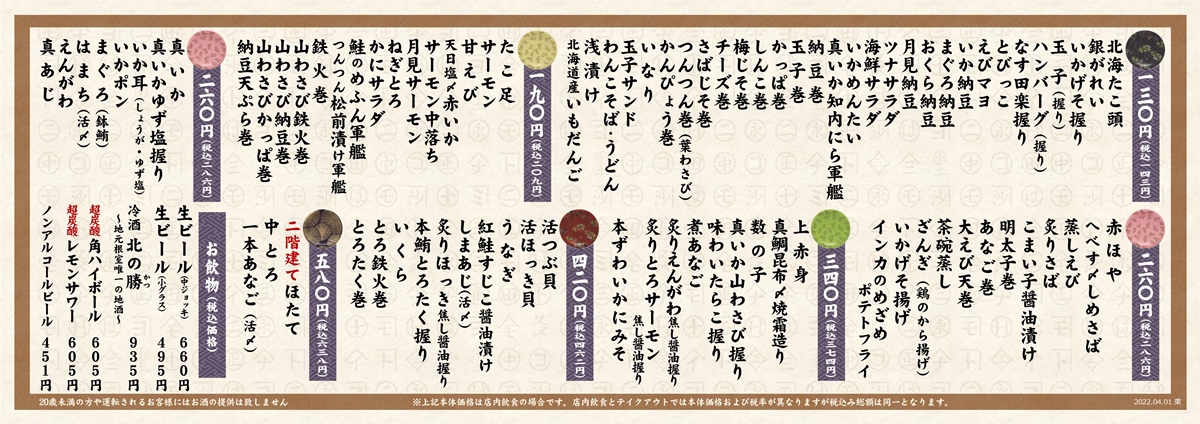 一三〇円(税込一四三円)
北海たこ頭
銀がれい
いかげそ握り
玉子(握り)
ハンバーグ(握り)
なす田楽握り
とびっこ
えびマヨ
いか納豆
まぐろ納豆
おくら納豆
月見納豆
ツナサラダ
海鮮サラダ
いかめんたい
真いか知内にら軍艦
納豆巻
玉子巻
かっぱ巻
しんこ巻
梅じそ巻
チーズ巻
さばじそ巻
つんつん巻(葉わさび)
かんぴょう巻
いなり
玉子サンド
わんこそば・うどん
浅漬け
北海道産いもだんご
一九〇円(税込二〇九円)
たこ足
サーモン
甘えび
天日塩〆赤いか
サーモン中落ち
月見サーモン
ねぎとろ
かにサラダ
鮭のめふん軍艦
つんつん松前漬け軍艦
鉄火巻
山わさび鉄火巻
山わさび納豆巻
山わさびかっぱ巻
納豆天ぷら巻
二六〇円(税込二八六円)
真いか
真いかゆず塩握り
いか耳(しょうが・ゆず塩)
いかポン
まぐろ(鉢鮪)
はまち(活〆)
えんがわ
真あじ
二六〇円(税込二八六円)
赤ほや
へべす〆しめさば
蒸しえび
炙りさば
こまい子醤油漬け
明太子巻
あなご巻
大えび天巻
茶碗蒸し
ざんぎ(鶏のから揚げ)
いかげそ揚げ
インカのめざめ
ポテトフライ
三四〇円(税込三七四円)
上赤身
真鯛昆布〆焼霜造り
数の子
真いか山わさび握り
味わいたらこ握り
煮あなご
炙りえんがわ焦し醤油握り
炙りとろサーモン
焦し醤油握り
本ずわいかにみそ
四二〇円(税込四六二円)
活つぶ貝
活ほっき貝
うなぎ
紅鮭すじこ醤油漬け
しまあじ(活〆)
炙りほっき焦し醤油握り
本鮪とろたく握り
いくら
とろ鉄火巻
とろたく巻
五八〇円(税込六三八円)
二階建てほたて
中とろ
一本あなご(活〆)
お飲物(税込価格)
生ビール(中ジョッキ) 660円
生ビール(小グラス) 495円
冷酒 北の勝 かつ 935円
~地元根室唯一の地酒~
超炭酸 角ハイボール 605円
超炭酸 レモンサワー 605円
ノンアルコールビール 451円
20歳未満の方や運転されるお客様にはお酒の提供は致しません
※上記本体価格は店内飲食の場合です。店内飲食とテイクアウトでは本体価格および税率が異なりますが税込み総額は同一となります。
2022.04.01 東